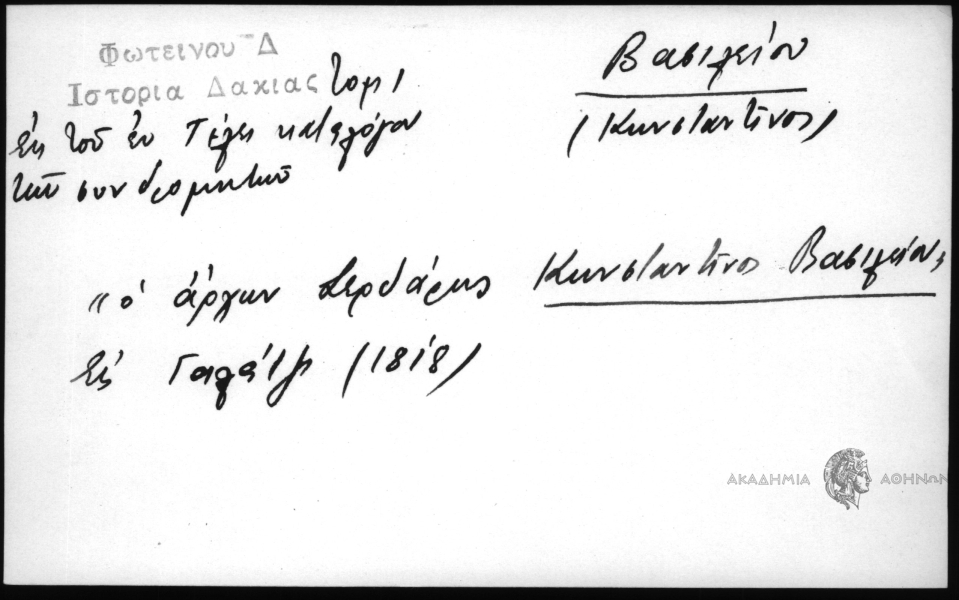 Φωτεινου Δ
Ιστορια Δακιας τομ 1
Εκ τοῦ ἐν τέλει καταλόγου
τῶν συνδρομητῶν
Βασιλείου
(Κωνσταντῖνος)
"ὁ ἄρχων Σερδάρης Κωνσταντῖνος Βασιλείου,
Εἰς Γαλάτζι (1818)
ΑΚΑΔΗΜΙΑ ΑΘΗΝΩΝ